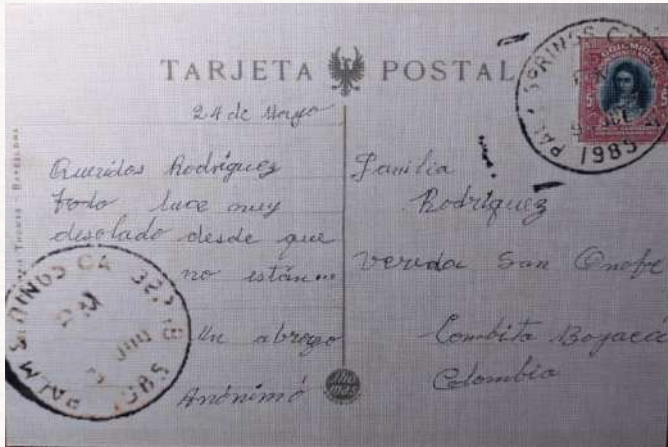 TARJETA POSTAL
24 de Mayo
Queridos Rodríguez
todo luce muy
desolado desde que
no están
Un abrazo
Anónimo
Familia
Rodríguez
Vereda San Onofre
Combita Boyacá
Colombia
PALM SPRINGS CA
1985
COLOMBIA
5
5
PALM SPRINGS CA
JUL
1985
THOMAS - BARCELONA